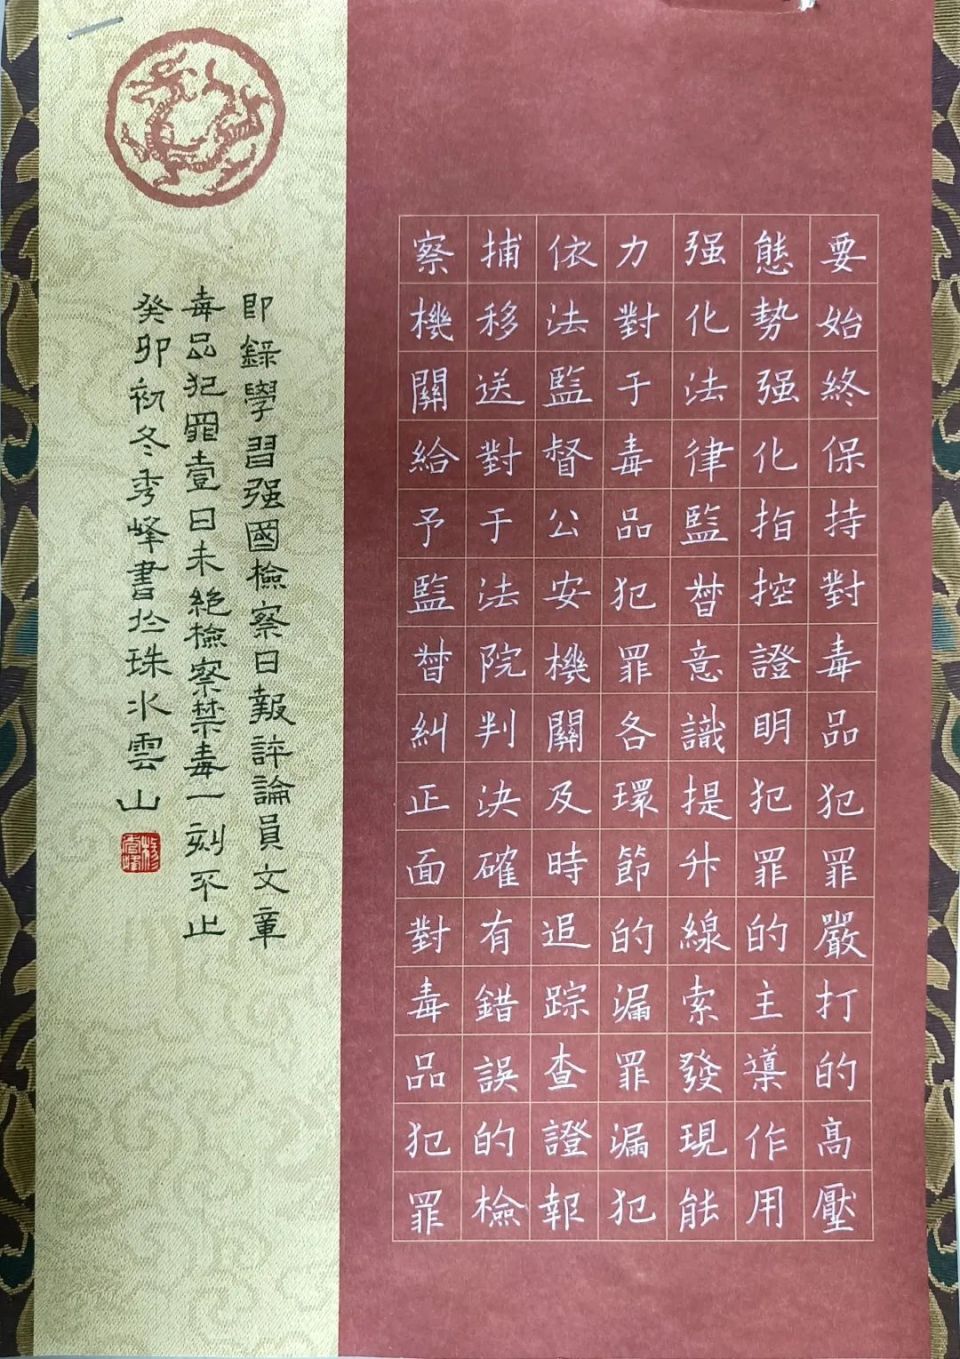 要始終保持對毒品犯罪嚴打的高壓
態勢强化指控證明犯罪的主導作用
强化法律監督意識提升線索發現能
力對于毒品犯罪各環節的漏罪漏犯
依法監督公安機關及時追踪查證報
捕移送對于法院判決確有錯誤的檢
察機關給予監督糾正面對毒品犯罪
即錄學習强國檢察日報評論員文章
毒品犯罪壹日未絕檢察禁毒一刻不止
癸卯初冬秀峰書於珠水雲山